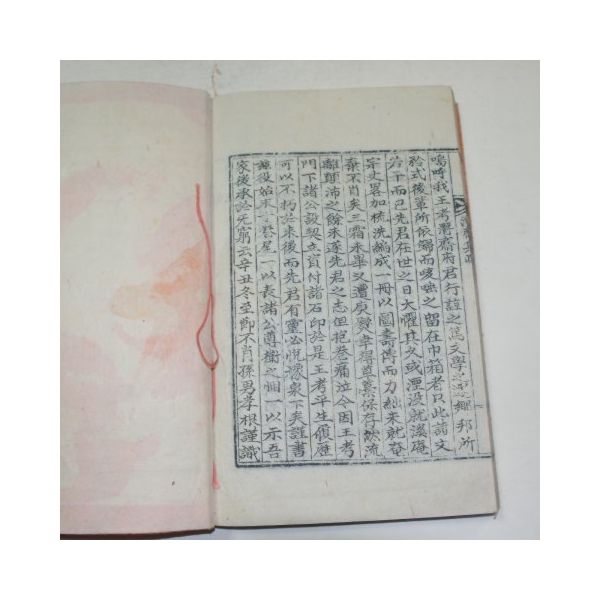 嗚呼我王考 齋府君行誼之篤文學之 鄉邦所
矜式後軰所依 而咳唾之留在巾箱者只此詩文
若干而已先君在世之日大懼其文或湮没就 庵
宗丈畧加梳洗編成一冊以圖壽傳而力絀未就奄
棄不肖矣三霜未畢又遭 變幸得 藁保存於流
離顛沛之餘未遂先君之志但抱卷痛泣今因王考
門下諸公設契立 付諸石印於是王考平生履歷
可以不朽於來後而先君有靈必悅豫泉下矣謹書
 役始末 一以表諸公尊 之悃一以示吾
家後承於无窮云辛丑冬至節不肖孫男孝根謹識